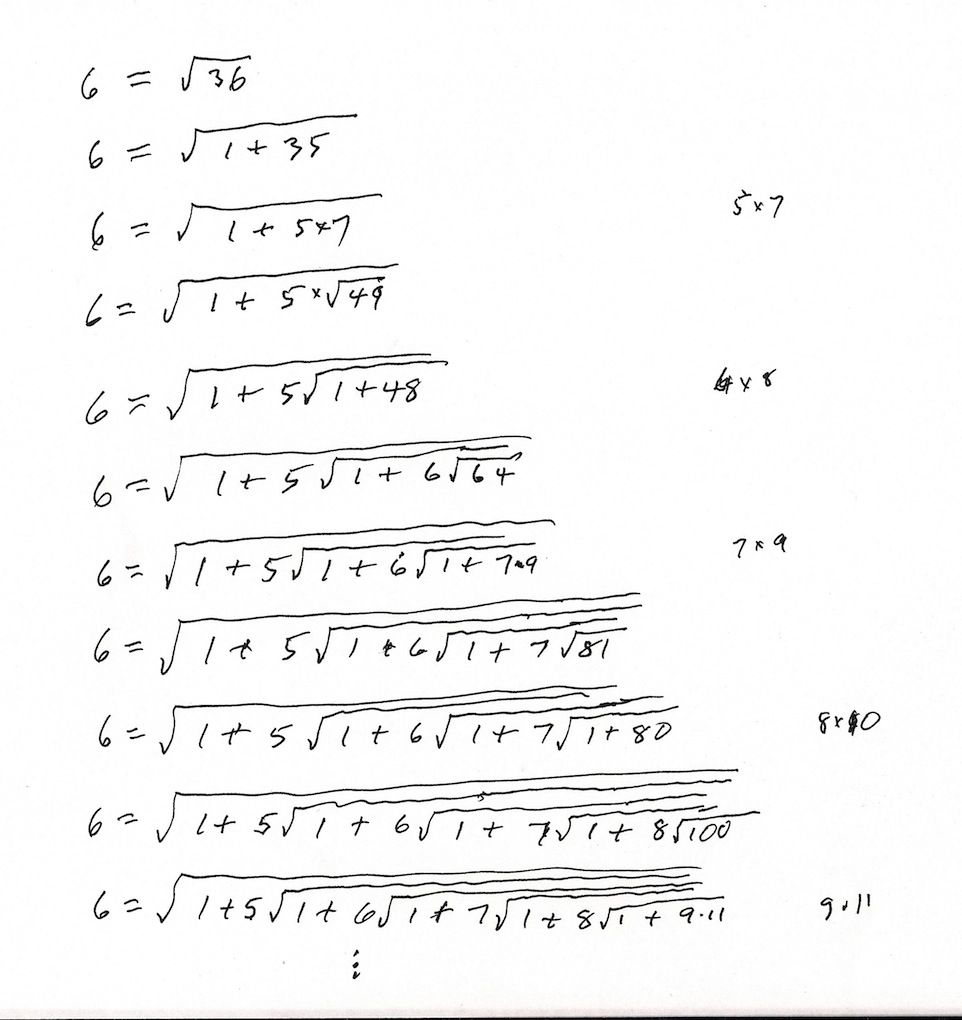 6 = √36
6 = √(1 + 35)
6 = √(1 + 5×7) 5×7
6 = √(1 + 5×√49)
6 = √(1 + 5√(1 + 48)) 6×8
6 = √(1 + 5√(1 + 6√64))
6 = √(1 + 5√(1 + 6√(1 + 7·9))) 7×9
6 = √(1 + 5√(1 + 6√(1 + 7√81)))
6 = √(1 + 5√(1 + 6√(1 + 7√(1 + 80)))) 8×10
6 = √(1 + 5√(1 + 6√(1 + 7√(1 + 8√100))))
6 = √(1 + 5√(1 + 6√(1 + 7√(1 + 8√(1 + 9·11))))) 9·11
⋮